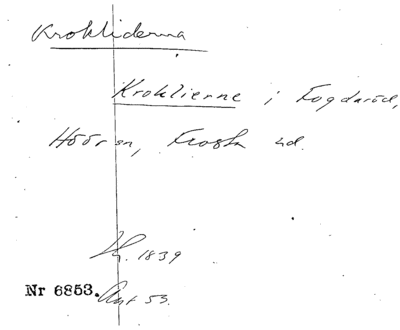 Krokliderna
Kroklierne i Fogdaröd,
Höör sn, Frosta hd.
Lh. 1839
Nr 6853. Akt 53.